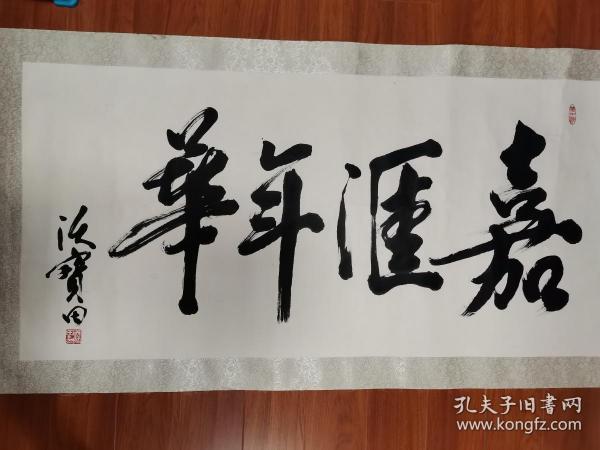 嘉滙年華
沃寶田
孔夫子旧書网
www.kongfz.com